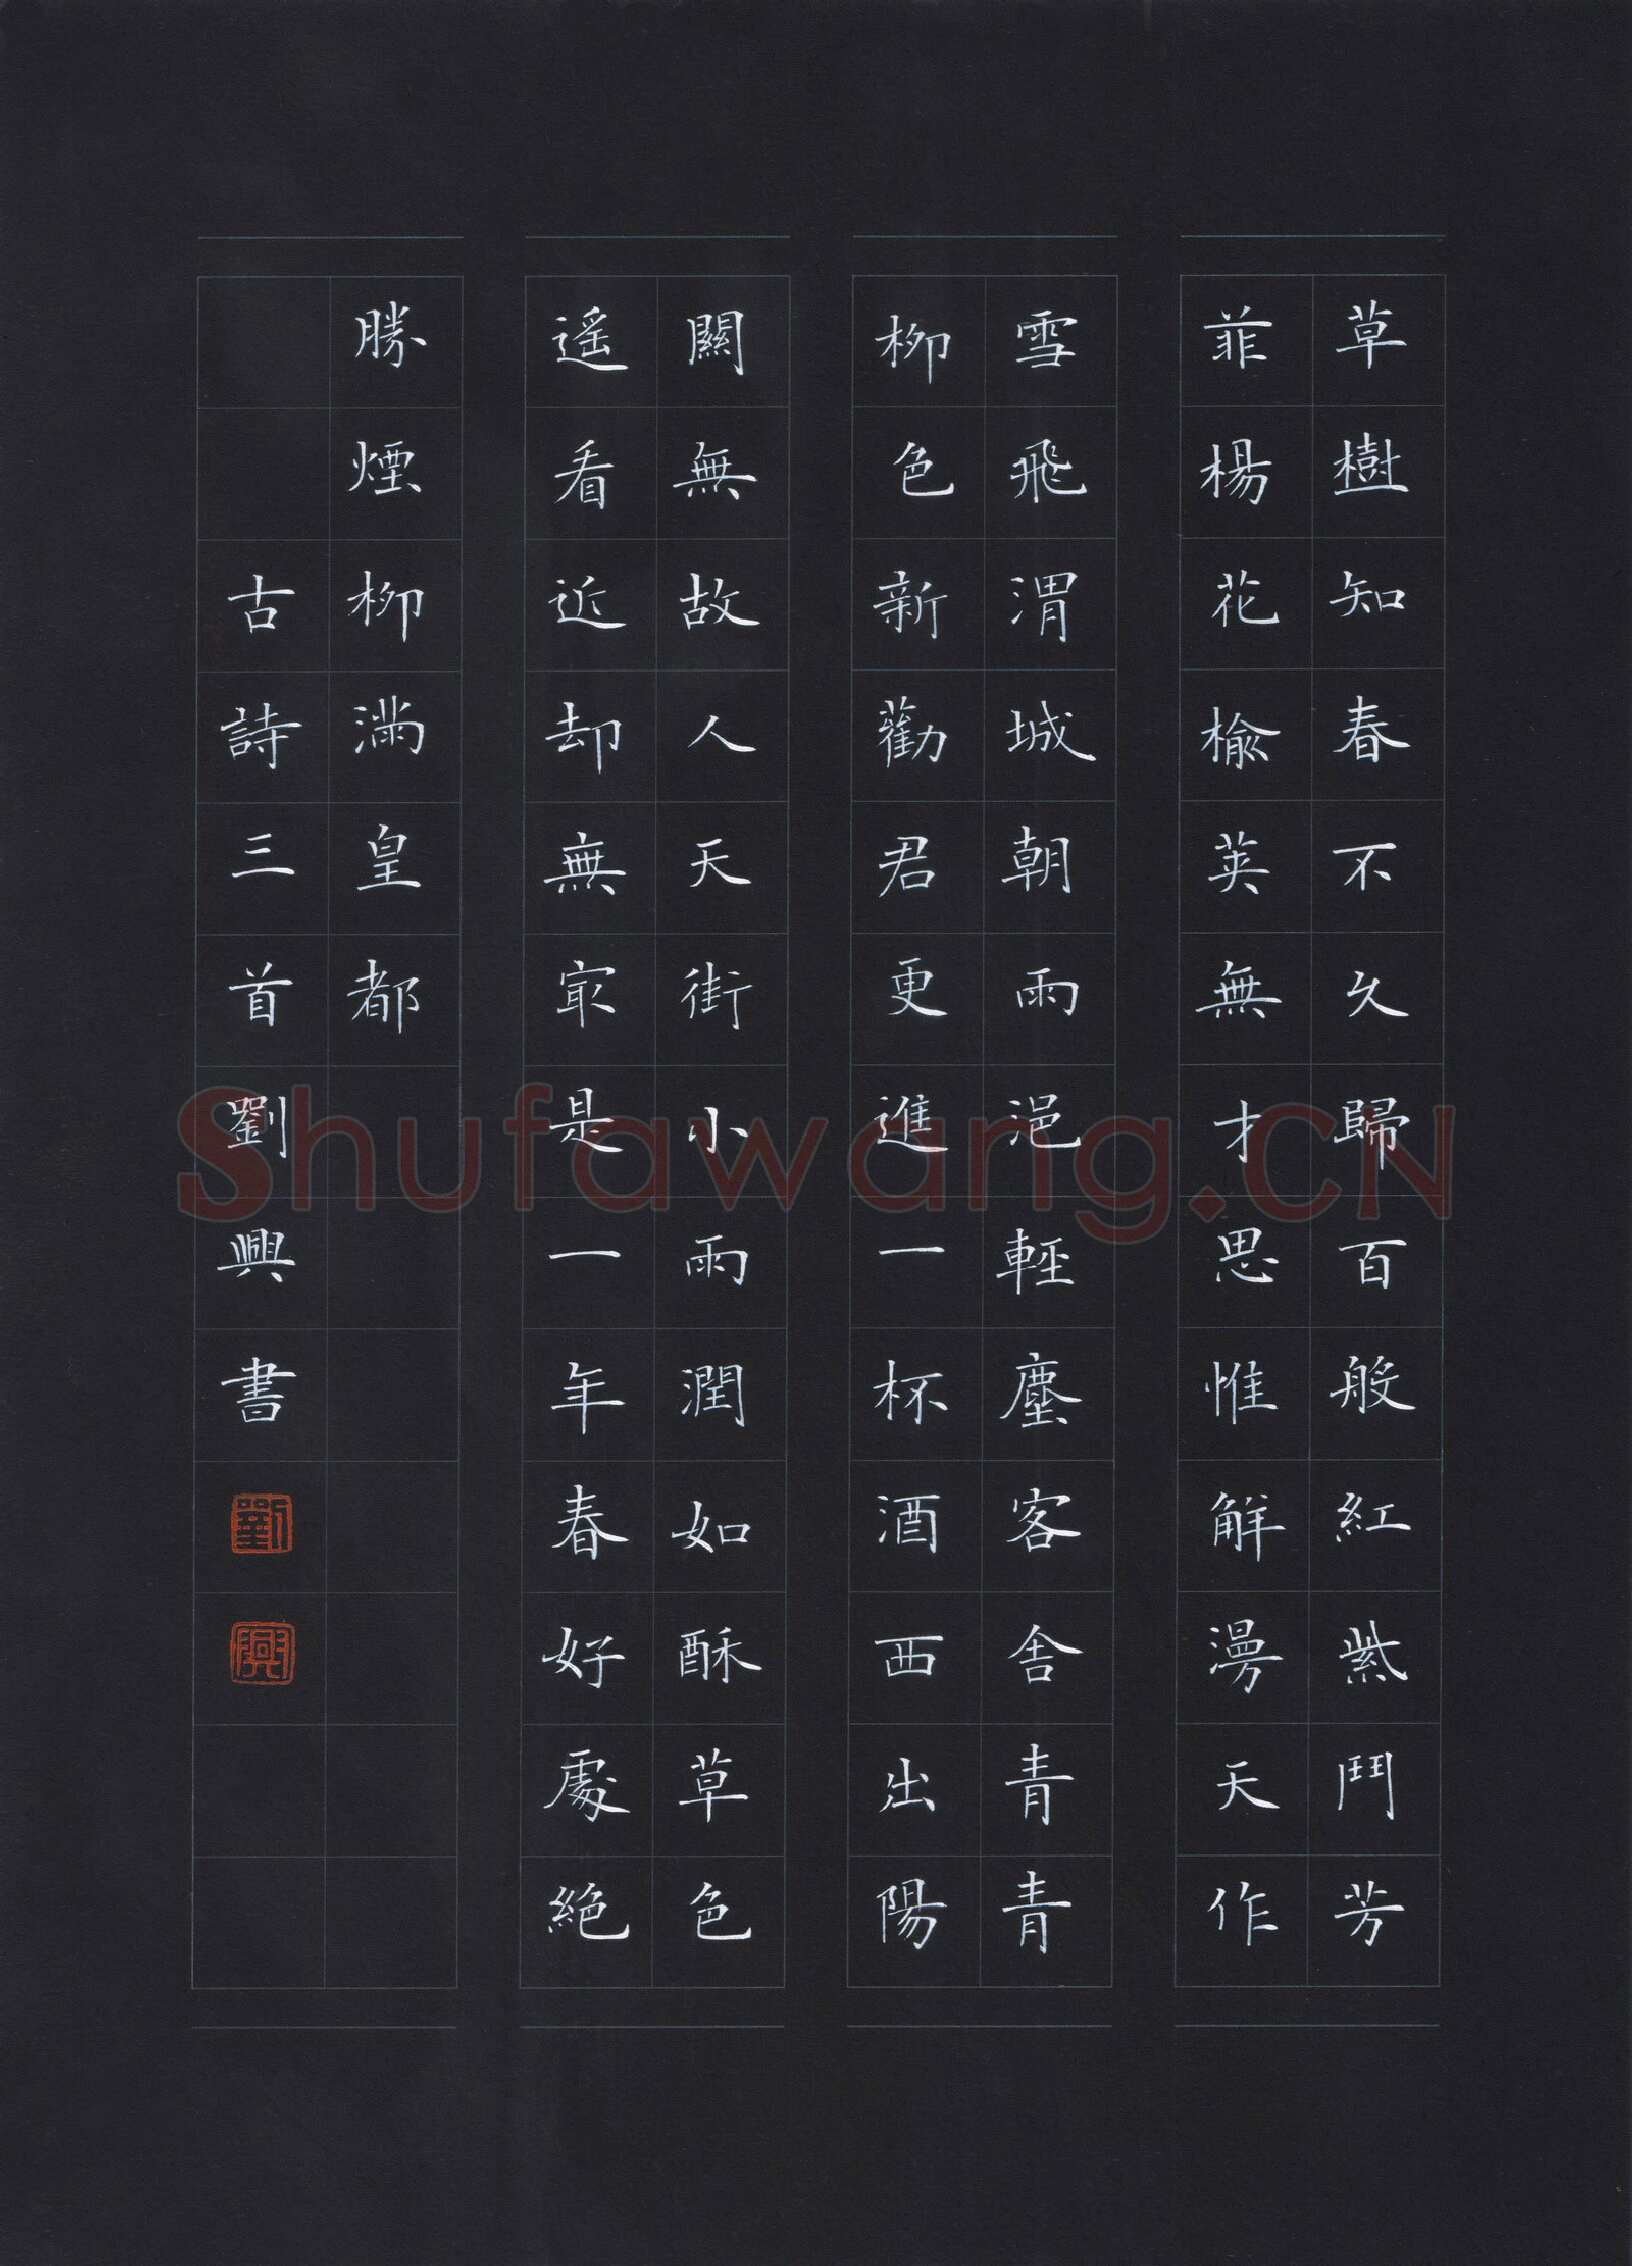 草樹知春不久歸百般紅紫鬥芳
菲楊花榆莢無才思惟解漫天作
雪飛渭城朝雨浥輕塵客舍青青
柳色新勸君更進一杯酒西出陽
關無故人天街小雨潤如酥草色
遥看近却無冣是一年春好處絕
勝煙柳滿皇都
古詩三首劉興書
劉
興
Shufawang.CN